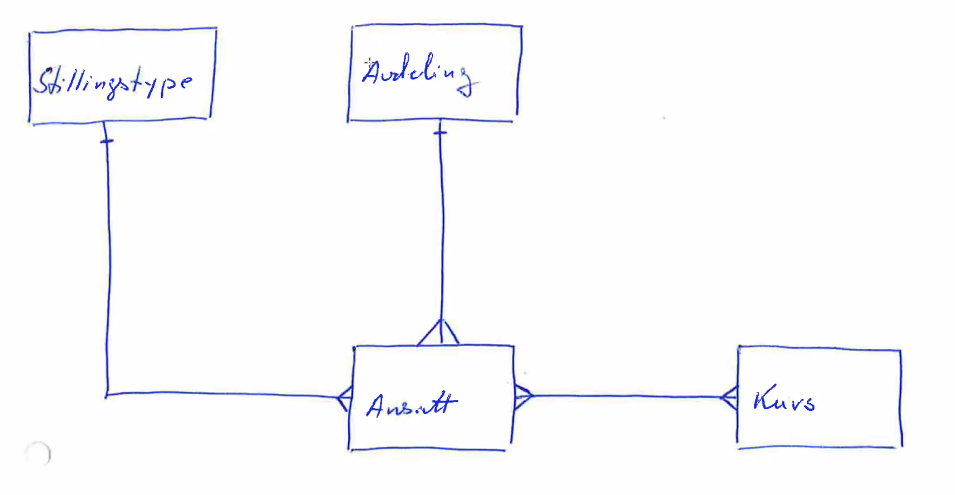 Stillingstype
Avdeling
Ansatt
Kurs